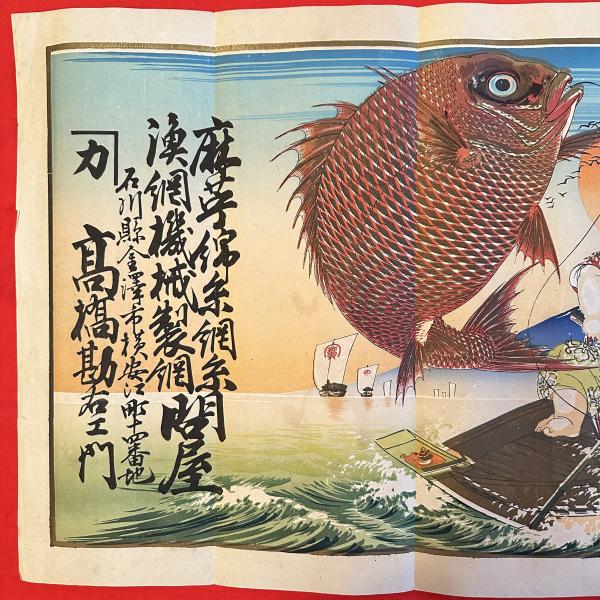 麻苧綿糸網糸問屋
漁網機械製網
石川縣金澤市横安江町十四番地
カ
髙橋勘右エ門
寳